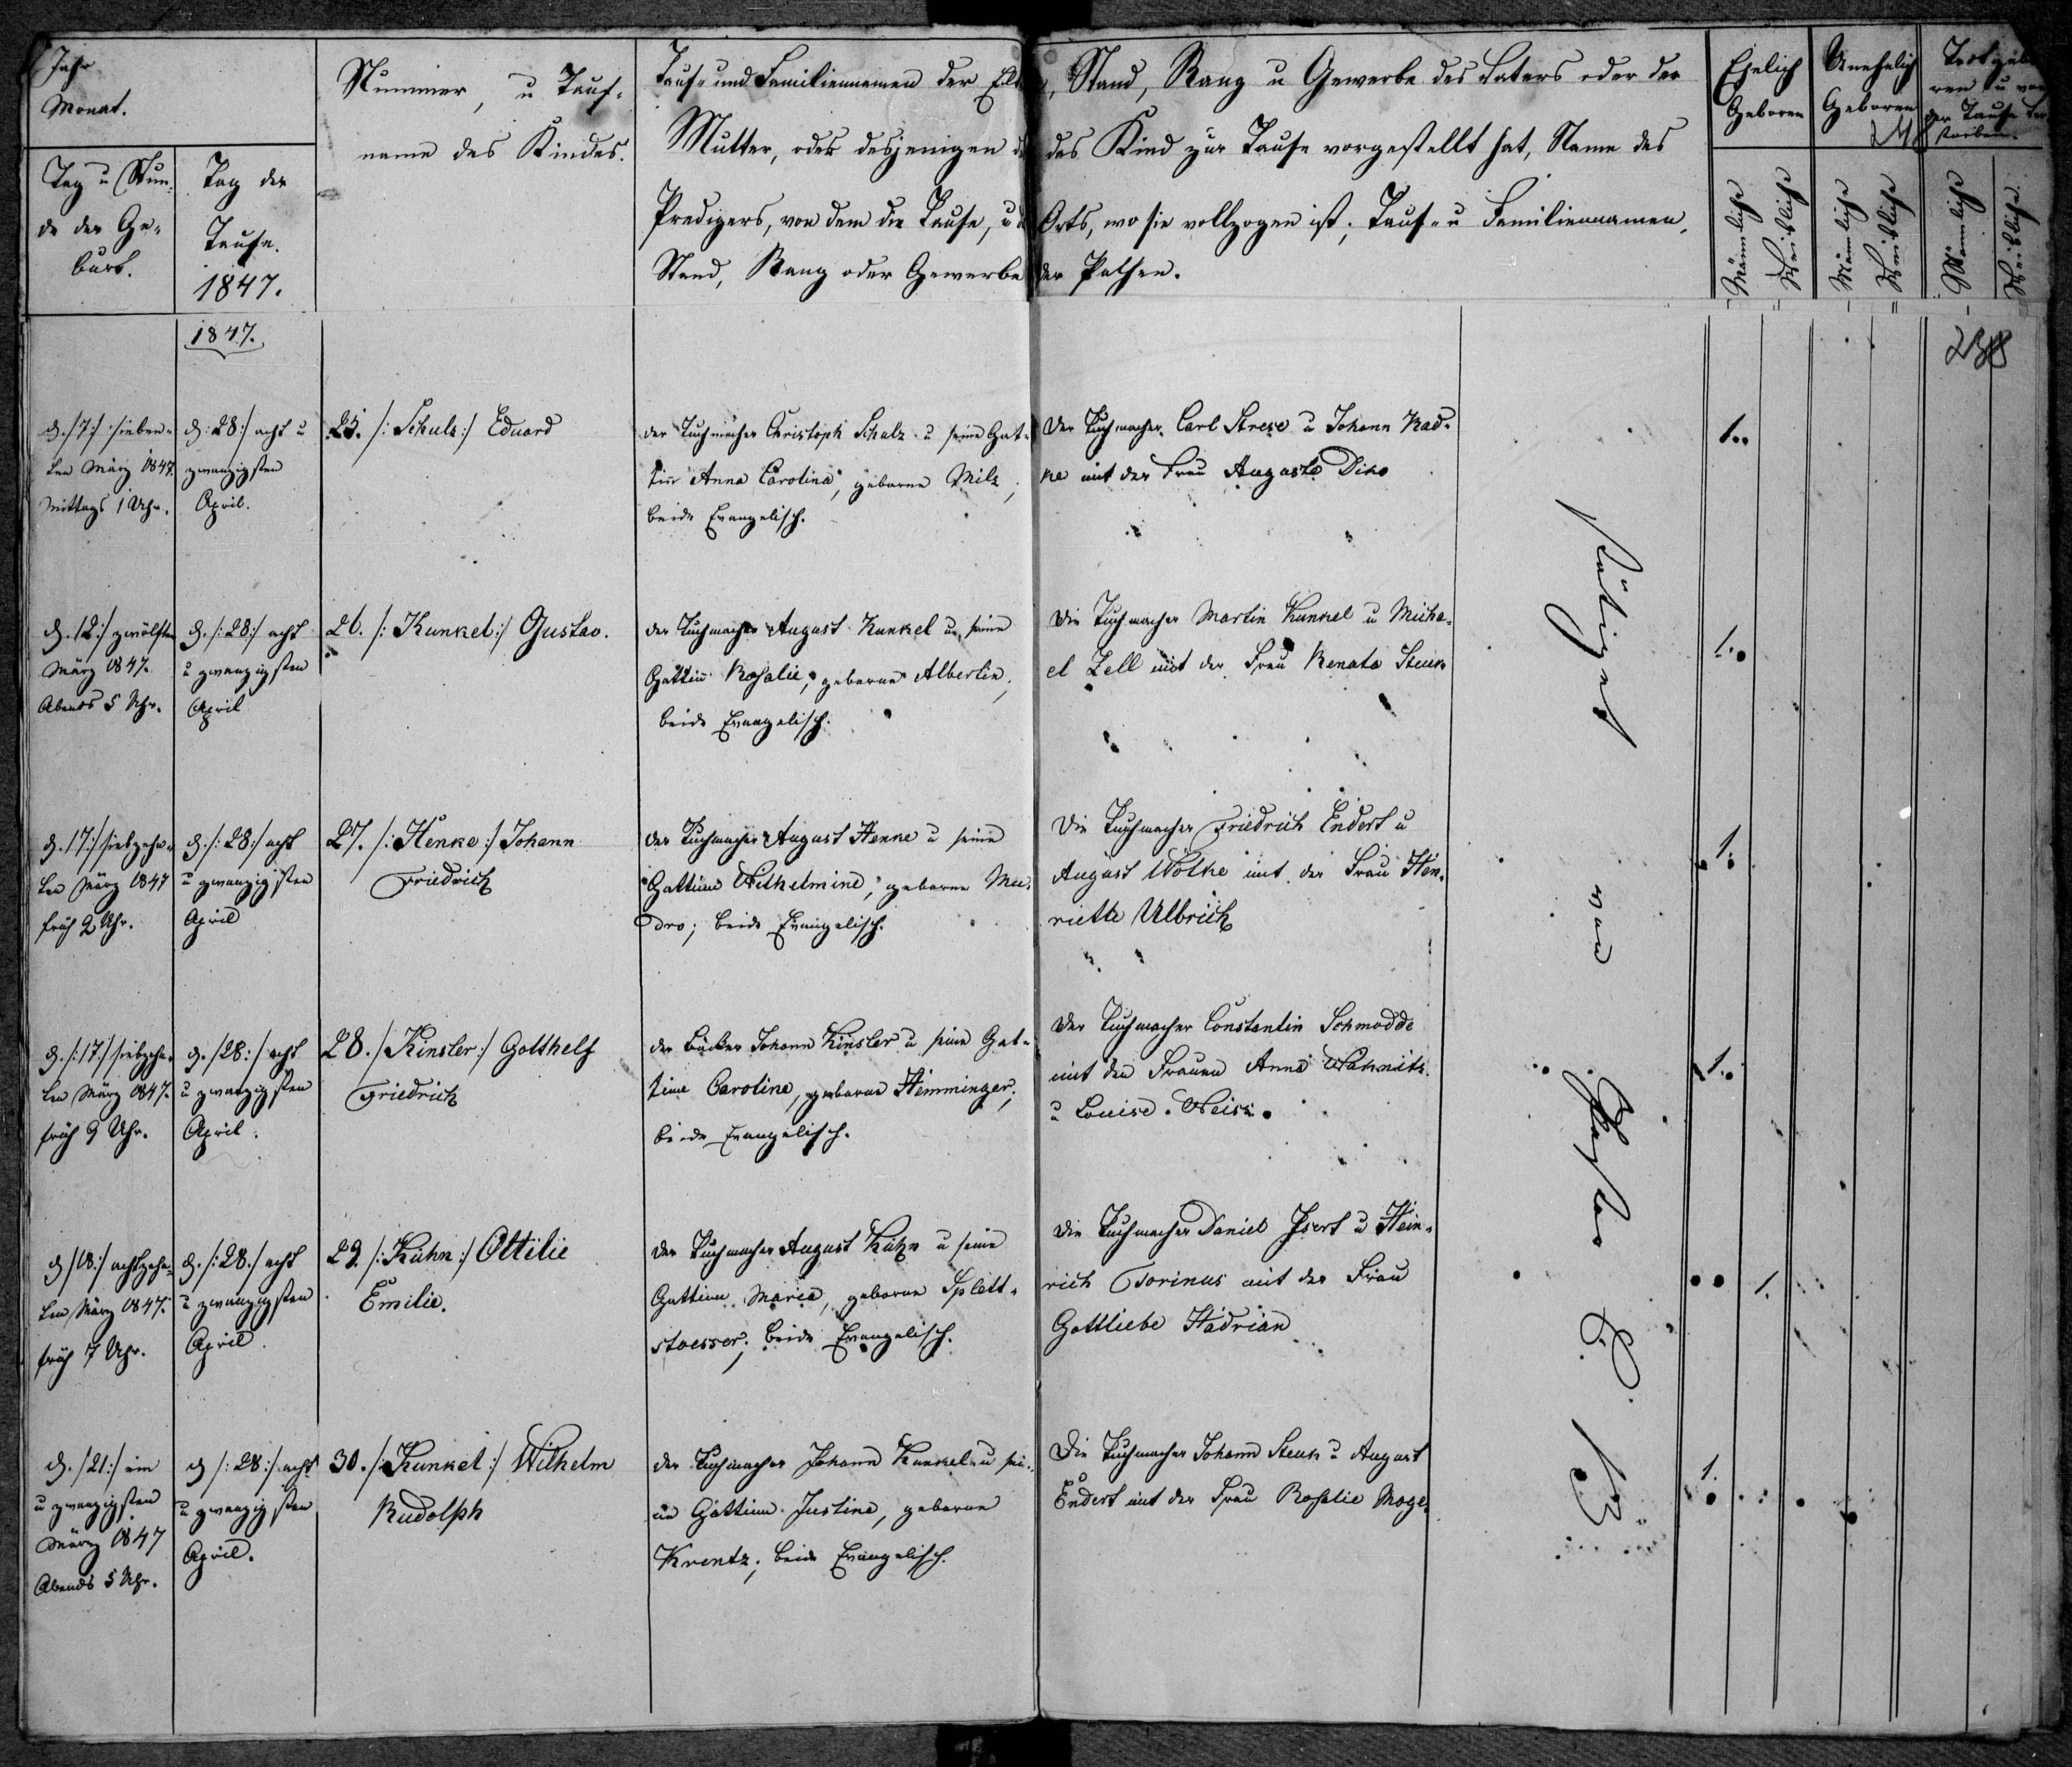 Jahr
Monat.
Tag u Stun-
de der Ge-
burt.
Tag der
Taufe.
1847.
Nummer, u Tauf-
name des Kindes.
Tauf- und Familiennamen der Elt
Mutter, oder desjenigen d
Predigers, von dem die Taufe, u d
Stand, Rang oder Gewerbe
, Stand, Rang u Gewerbe des Vaters oder der
das Kind zur Taufe vorgestellt hat, Name des
Orts, wo sie vollzogen ist; Tauf- u Familiennamen,
der Pathen.
Ehelich
Geboren
Männliche
Weibliche
Unehelich
Geboren
Männliche
Weibliche
Todtgebo
ren u vor
der Taufe ver
storben.
Männliche
Weibliche
1847.
d. /7:/ sieben-
ten März 1847.
Mittags 1 Uhr.
d. 28:/ acht u
zwanzigsten
April.
25. /: Schulz :/ Eduard
der Tuchmacher Christoph Schulz u seine Gat-
tin Anna Carolina, geborene Milz,
beide Evangelisch.
Der Tuchmacher Carl Strese u Johann Rad-
ke mit der Frau Auguste Dike
1.
d. 12:/ zwölften
März 1847.
Abends 5 Uhr.
d. /: 28:/ acht
u zwanzigsten
April
26. /: Kunkel :/ Gustav.
der Tuchmacher August Kunkel u seine
Gattin Rosalie, geborene Albertin,
beide Evangelisch.
Die Tuchmacher Martin Kunkel u Micha-
el Zell mit der Frau Renate Steuk
1.
d. 17:/ siebzehn-
ten März 1847
früh 2 Uhr.
d. /: 28:/ acht
u zwanzigsten
April
27. /: Henke :/ Johann
Friedrich
der Tuchmacher August Henke u seine
Gattinn Wilhelmine, geborene Mu-
dro; beide Evangelisch.
Die Tuchmacher Friedrich Endert u
August Wölke mit der Frau Hen-
riette Ulbrich
1.
d. /: 17:/ siebzehn-
ten März 1847.
früh 9 Uhr.
d. /28:/ acht
u zwanzigsten
April.
28. /: Kinsler :/ Gotthelf
Friedrich
der Bäcker Johann Kinsler u seine Gat-
tinn Caroline, geborene Hemminger;
beide Evangelisch.
Der Tuchmacher Constantin Schmodde
mit den Frauen Anna Wahnitz
u Louise Weiss.
1.
d /18:/ achtzehn-
ten März 1847.
früh 7 Uhr.
d. /: 28:/ acht
u zwanzigsten
April.
29. /: Kühn :/ Ottilie
Emilie.
der Tuchmacher August Kühn u seine
Gattinn Maria, geborene Splett-
stoesser; beide Evangelisch.
Die Tuchmacher Daniel Isert u Hein-
rich Torinus mit der Frau
Gottliebe Hadrian
1.
d. /21:/ ein
u zwanzigsten
März 1847
Abends 5 Uhr.
d /: 28:/ acht
u zwanzigsten
April.
30. /: Kunkel :/ Wilhelm
Rudolph
der Tuchmacher Johann Kunkel u sei-
ne Gattinn Justine, geborene
Krentz; beide Evangelisch.
Die Tuchmacher Johann Steuk u August
Endert mit der Frau Rosalie Moge
1.
von Pastor